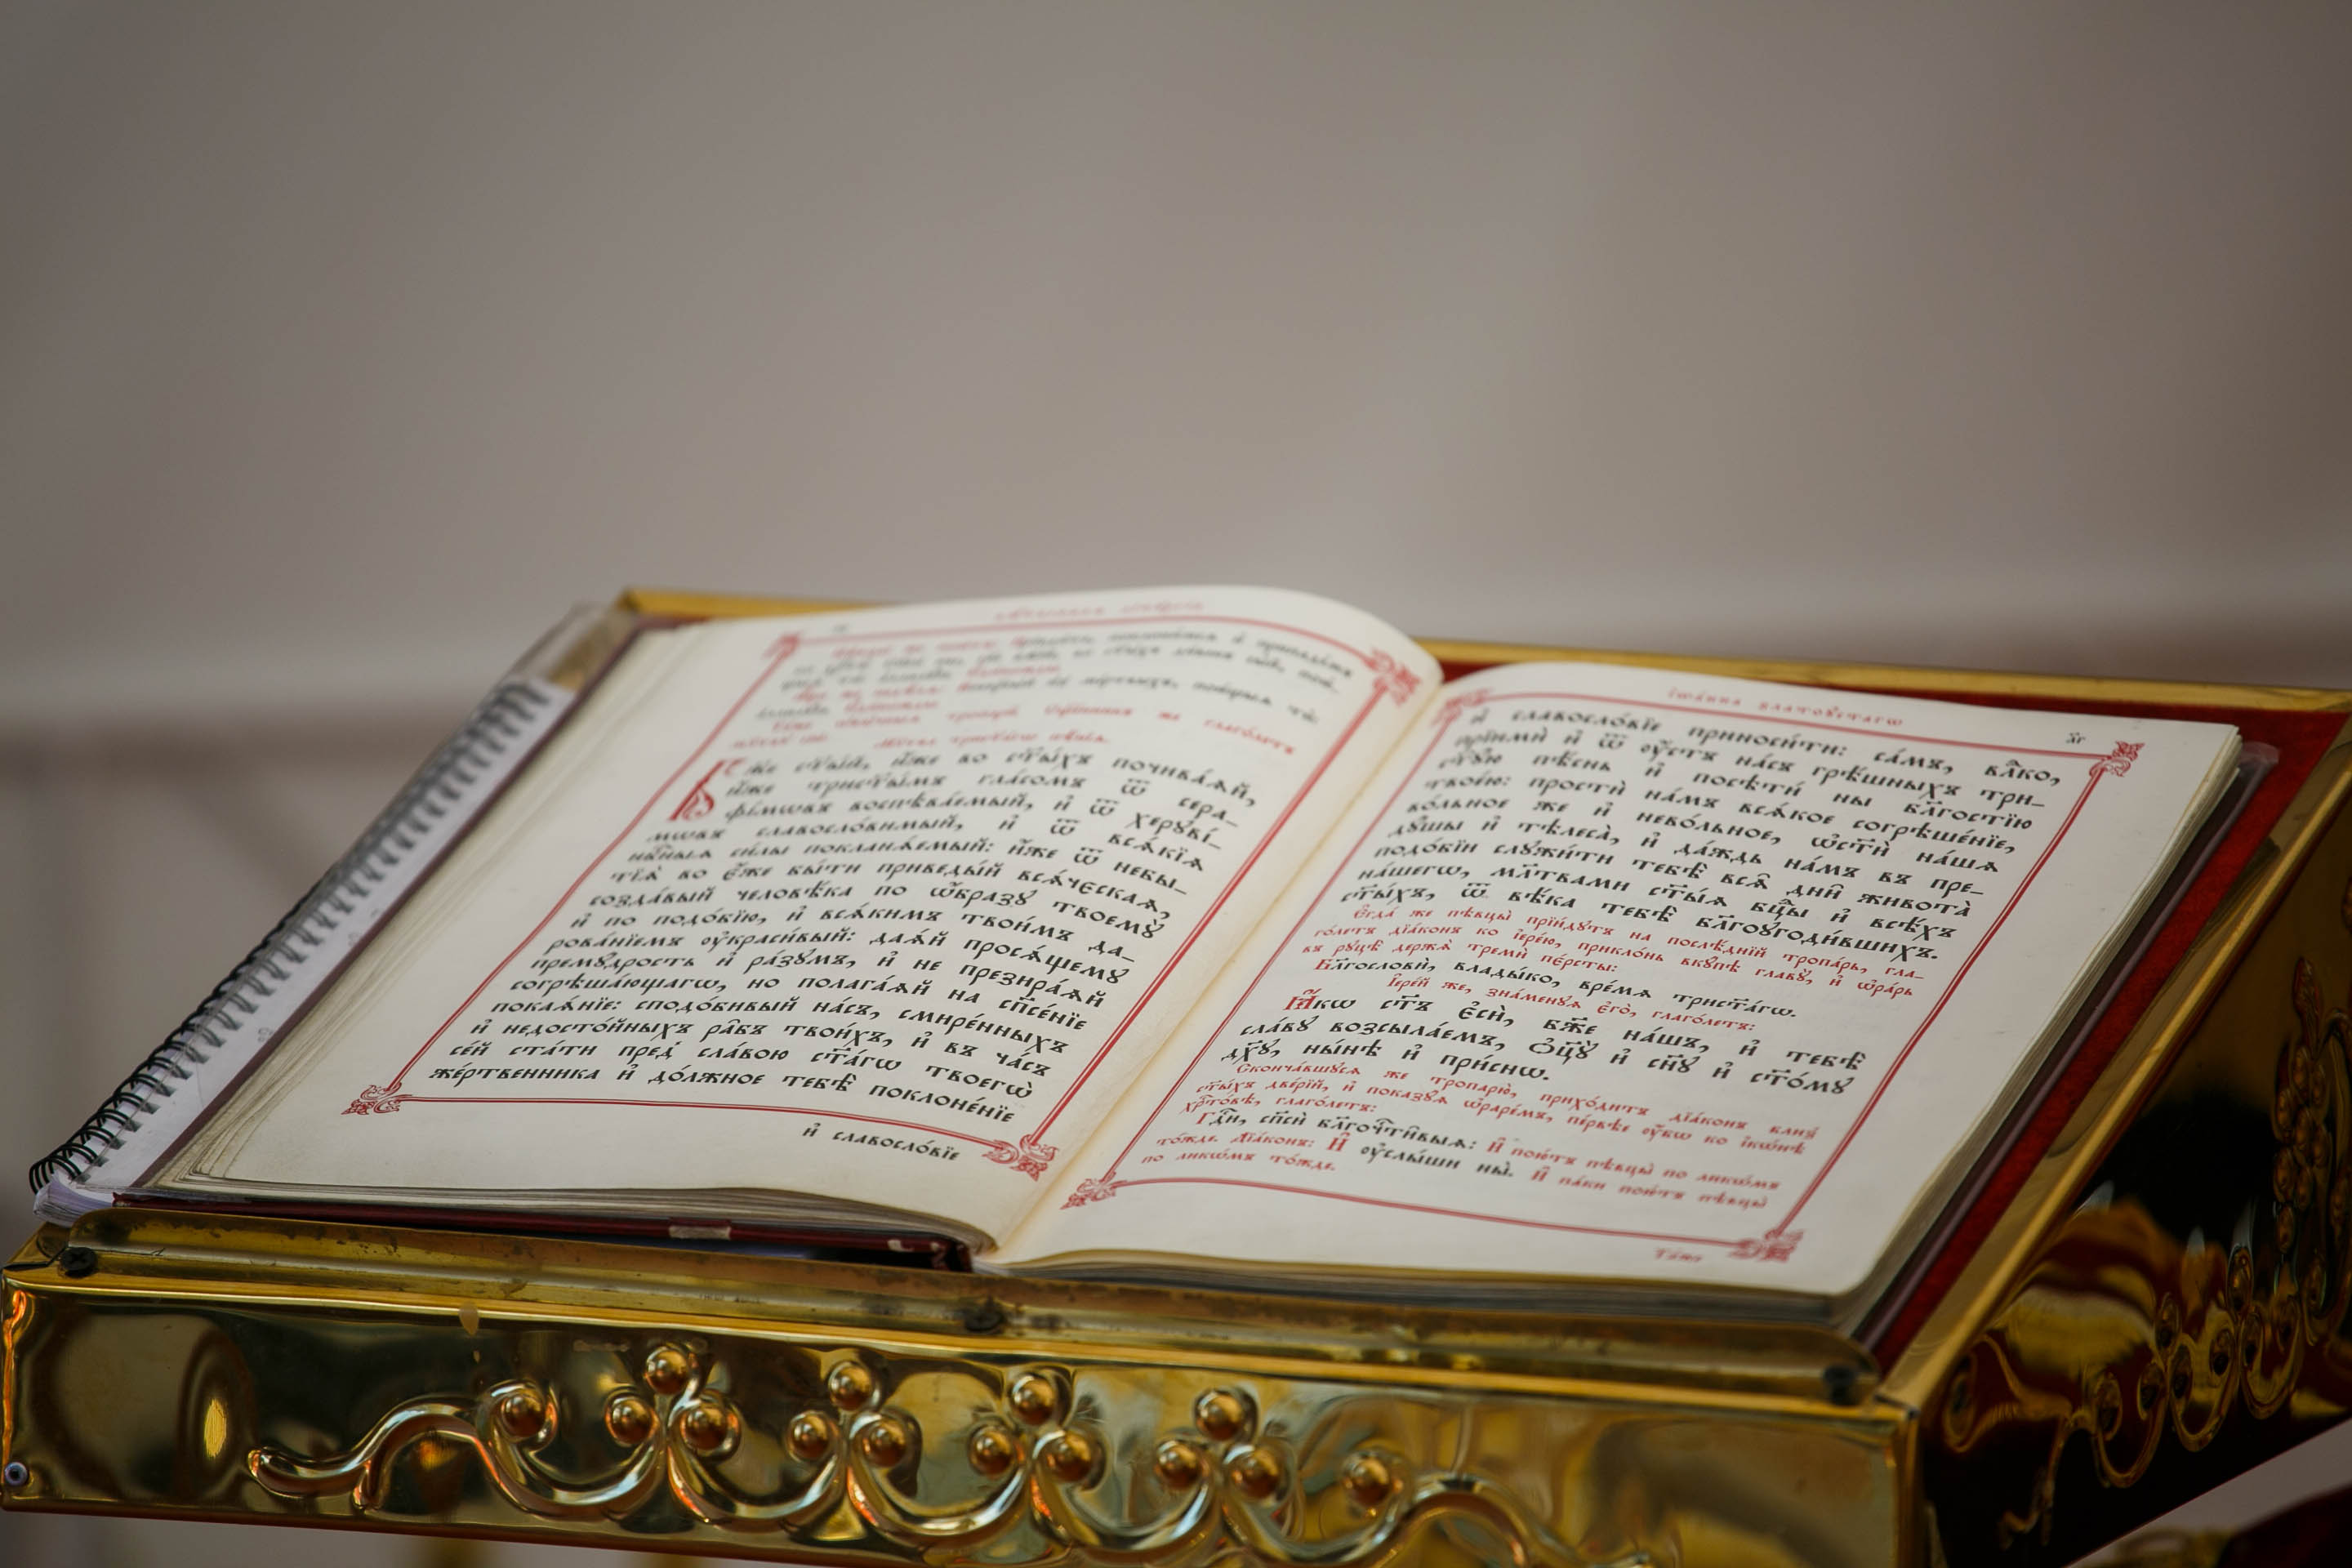 Бж҃е ст҃ы́й, и҆́же во ст҃ы́хъ почива́ѧй,
и҆́же трист҃ы́мъ гла́сомъ ѿ сера-
фі́мѡвъ воспѣва́емый, и҆ ѿ херꙋві́-
мѡвъ славосло́вимый, и҆ ѿ всѧ́кїѧ
нбⷭ҇ныѧ си́лы покланѧ́емый: и҆́же ѿ небы-
тїѧ̀ во є҆́же бы́ти приведы́й всѧ́чєскаѧ,
созда́вый человѣ́ка по ѡ҆́бразꙋ твоемꙋ̀
и҆ по подо́бїю, и҆ всѧ́кимъ твои́мъ да-
рова́нїемъ ᲂу҆краси́вый: даѧ́й просѧ́щемꙋ
премꙋ́дрость и҆ ра́зꙋмъ, и҆ не презира́ѧй
согрѣша́ющагѡ, но полага́ѧй на сп҃се́нїе
покаѧ́нїе: сподо́бивый на́съ, смире́нныхъ
и҆ недосто́йныхъ ра̑бъ твои́хъ, и҆ въ ча́съ
се́й ста́ти пред̾ сла́вою ст҃а́гѡ твоегѡ̀
же́ртвенника и҆ до́лжное тебѣ̀ поклоне́нїе
и҆ славосло́вїе
і҆ѡа́нна златоꙋ́стагѡ
и҆ славосло́вїе приноси́ти: са́мъ, влⷣко,
прїимѝ и҆ ѿ ᲂу҆́стъ на́съ грѣ́шныхъ три-
ст҃ꙋ́ю пѣ́снь и҆ посѣтѝ ны̀ бл҃гостїю
твое́ю: простѝ на́мъ всѧ́кое согрѣше́нїе,
во́льное же и҆ нево́льное, ѡ҆ст҃ѝ на́шѧ
дꙋ́шы и҆ тѣлеса̀, и҆ да́ждь на́мъ въ пре-
подо́бїи слꙋжи́ти тебѣ̀ всѧ̑ дни̑ живота̀
на́шегѡ, мл҃твами ст҃ы́ѧ бцⷣы и҆ всѣ́хъ
ст҃ы́хъ, ѿ вѣ́ка тебѣ̀ бл҃гоꙋгоди́вшихъ.
Є҆гда́ же пѣвцы̀ прїи́дꙋтъ на послѣ́днїй тропа́рь, гла-
го́летъ дїа́конъ ко і҆ере́ю, прикло́нь вкꙋ́пѣ главꙋ̀, и҆ ѡ҆ра́рь
въ рꙋцѣ̀ держа̀ тремѝ пе́рсты:
Бл҃гословѝ, влады́ко, вре́мѧ трист҃а́гѡ.
І҆ере́й же, зна́менꙋѧ є҆го̀, глаго́летъ:
Ꙗ҆́кѡ ст҃ъ є҆сѝ, бж҃е на́шъ, и҆ тебѣ̀
сла́вꙋ возсыла́емъ, ѻ҆ц҃ꙋ̀ и҆ сн҃ꙋ и҆ ст҃о́мꙋ
дх҃ꙋ, ны́нѣ и҆ при́снѡ.
Сконча́вшꙋсѧ же тропарю̀, прихо́дитъ дїа́конъ бли́з̾
ст҃ы́хъ две́рїй, и҆ показꙋ́ѧ ѡ҆раре́мъ, пе́рвѣе ᲂу҆́бѡ ко і҆кѡ́нѣ
хрⷭ҇то́вѣ, глаго́летъ:
Гдⷭ҇и, сп҃сѝ бл҃гочⷭ҇ти̑выѧ: И҆ пою́тъ пѣвцы̀ по ликѡ́мъ
то́жде. Дїа́конъ: И҆ ᲂу҆слы́ши ны̀. И҆ па́ки пою́тъ пѣвцы̀
по ликѡ́мъ то́жде.